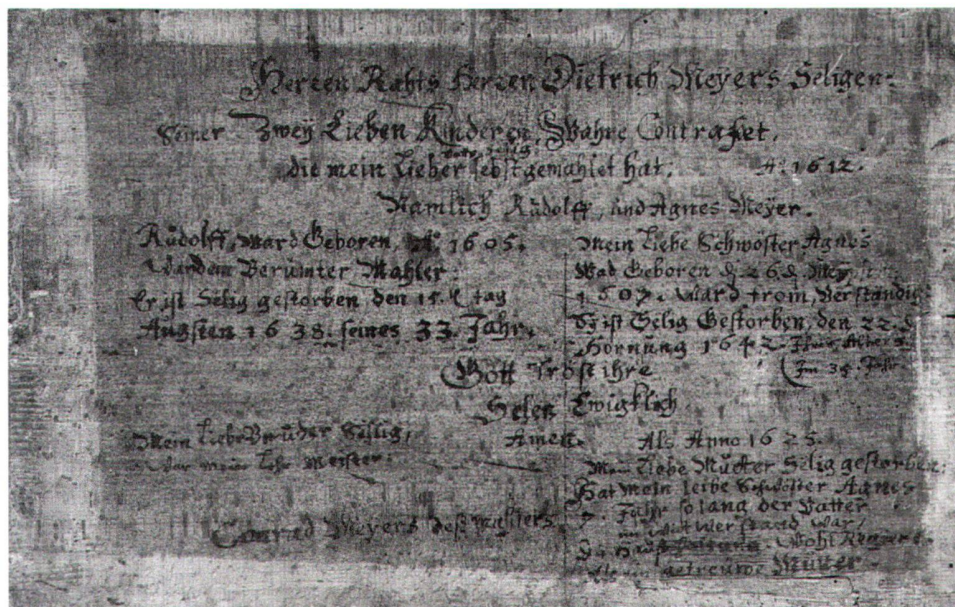 Herren Rahts Herren Dietrich Meyers Seligen:
Seiner Zweÿ Lieben Kinderen, Wahre Contrafet,
Vatter Selig
die mein Lieber selbst gemahlet hat. Aº. 1612.
Namlich Růdolff, und Agnes Meÿer.
Růdolff, Ward Geboren, Aº 1605.
Berümter Mahler.
Er ist Selig gestorben, den 15. tag
Augsten 1638. seines 33. Jahr.
Mein Liebe Schwöster Agnes
Wad Geboren d. 26. d.
1607. Ward from, Verständig.
ist Selig Gestorben, den 22. d.
Hornung 1642. Ihres Alters
Im 35. Jahr
Gott Tröst ihre
Selen Ewigklich
Amen.
Mein Liebe Bruder Selig,
War mein Lehr Meister.
Conrad Meyers deß mallers
Als Anno 1625.
Mein Liebe Mutter Selig gestorben:
Hat mein leibe Schwöster Agnes
7. Jahr so lang der Vatter
im witwer stand war,
Die Hauß haltung. Wohl
Als ein getreuwe Mutter.